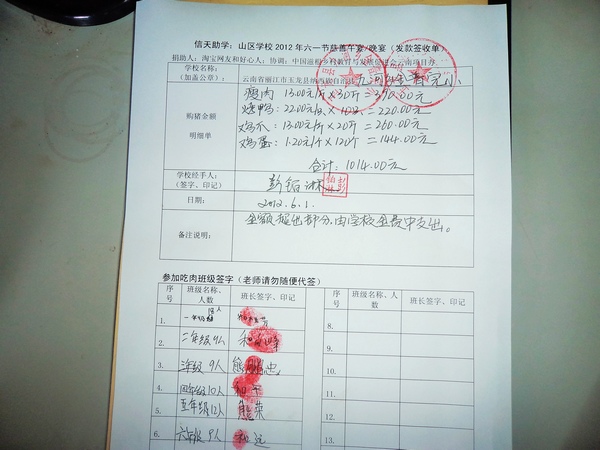 信天助学：山区学校2012年六一节慈善午宴/晚宴（发款签收单）
捐助人：淘宝网友和好心人；协调：中国滋根乡村教育与发展促进会云南项目办
学校名称：
（加盖公章）：
云南省丽江市玉龙县纳西族自治县
购猪金额
明细单
瘦肉 13.00元/斤×30斤=390.00元
烧鸭：22.00元/只×10只=220.00元
鸡爪：13.00元/斤×20斤=260.00元
鸡蛋：1.20元/个×120个=144.00元
合计：1014.00元
学校经手人：
（签字、印记）
日期：
2012.6.1.
备注说明：
金额超出部分，由学校金费中支出。
参加吃肉班级签字（老师请勿随便代签）
序号 班级名称、人数 班长签字、印记 序号 班级名称、人数 班长签字、印记
1. 一年级 8.
2. 二年级9人 9.
3. 三年级 9人 熊 忠 10.
4. 四年级10人 11.
5. 五年级12人 熊荣 12.
6. 六年级9人 和远 13.